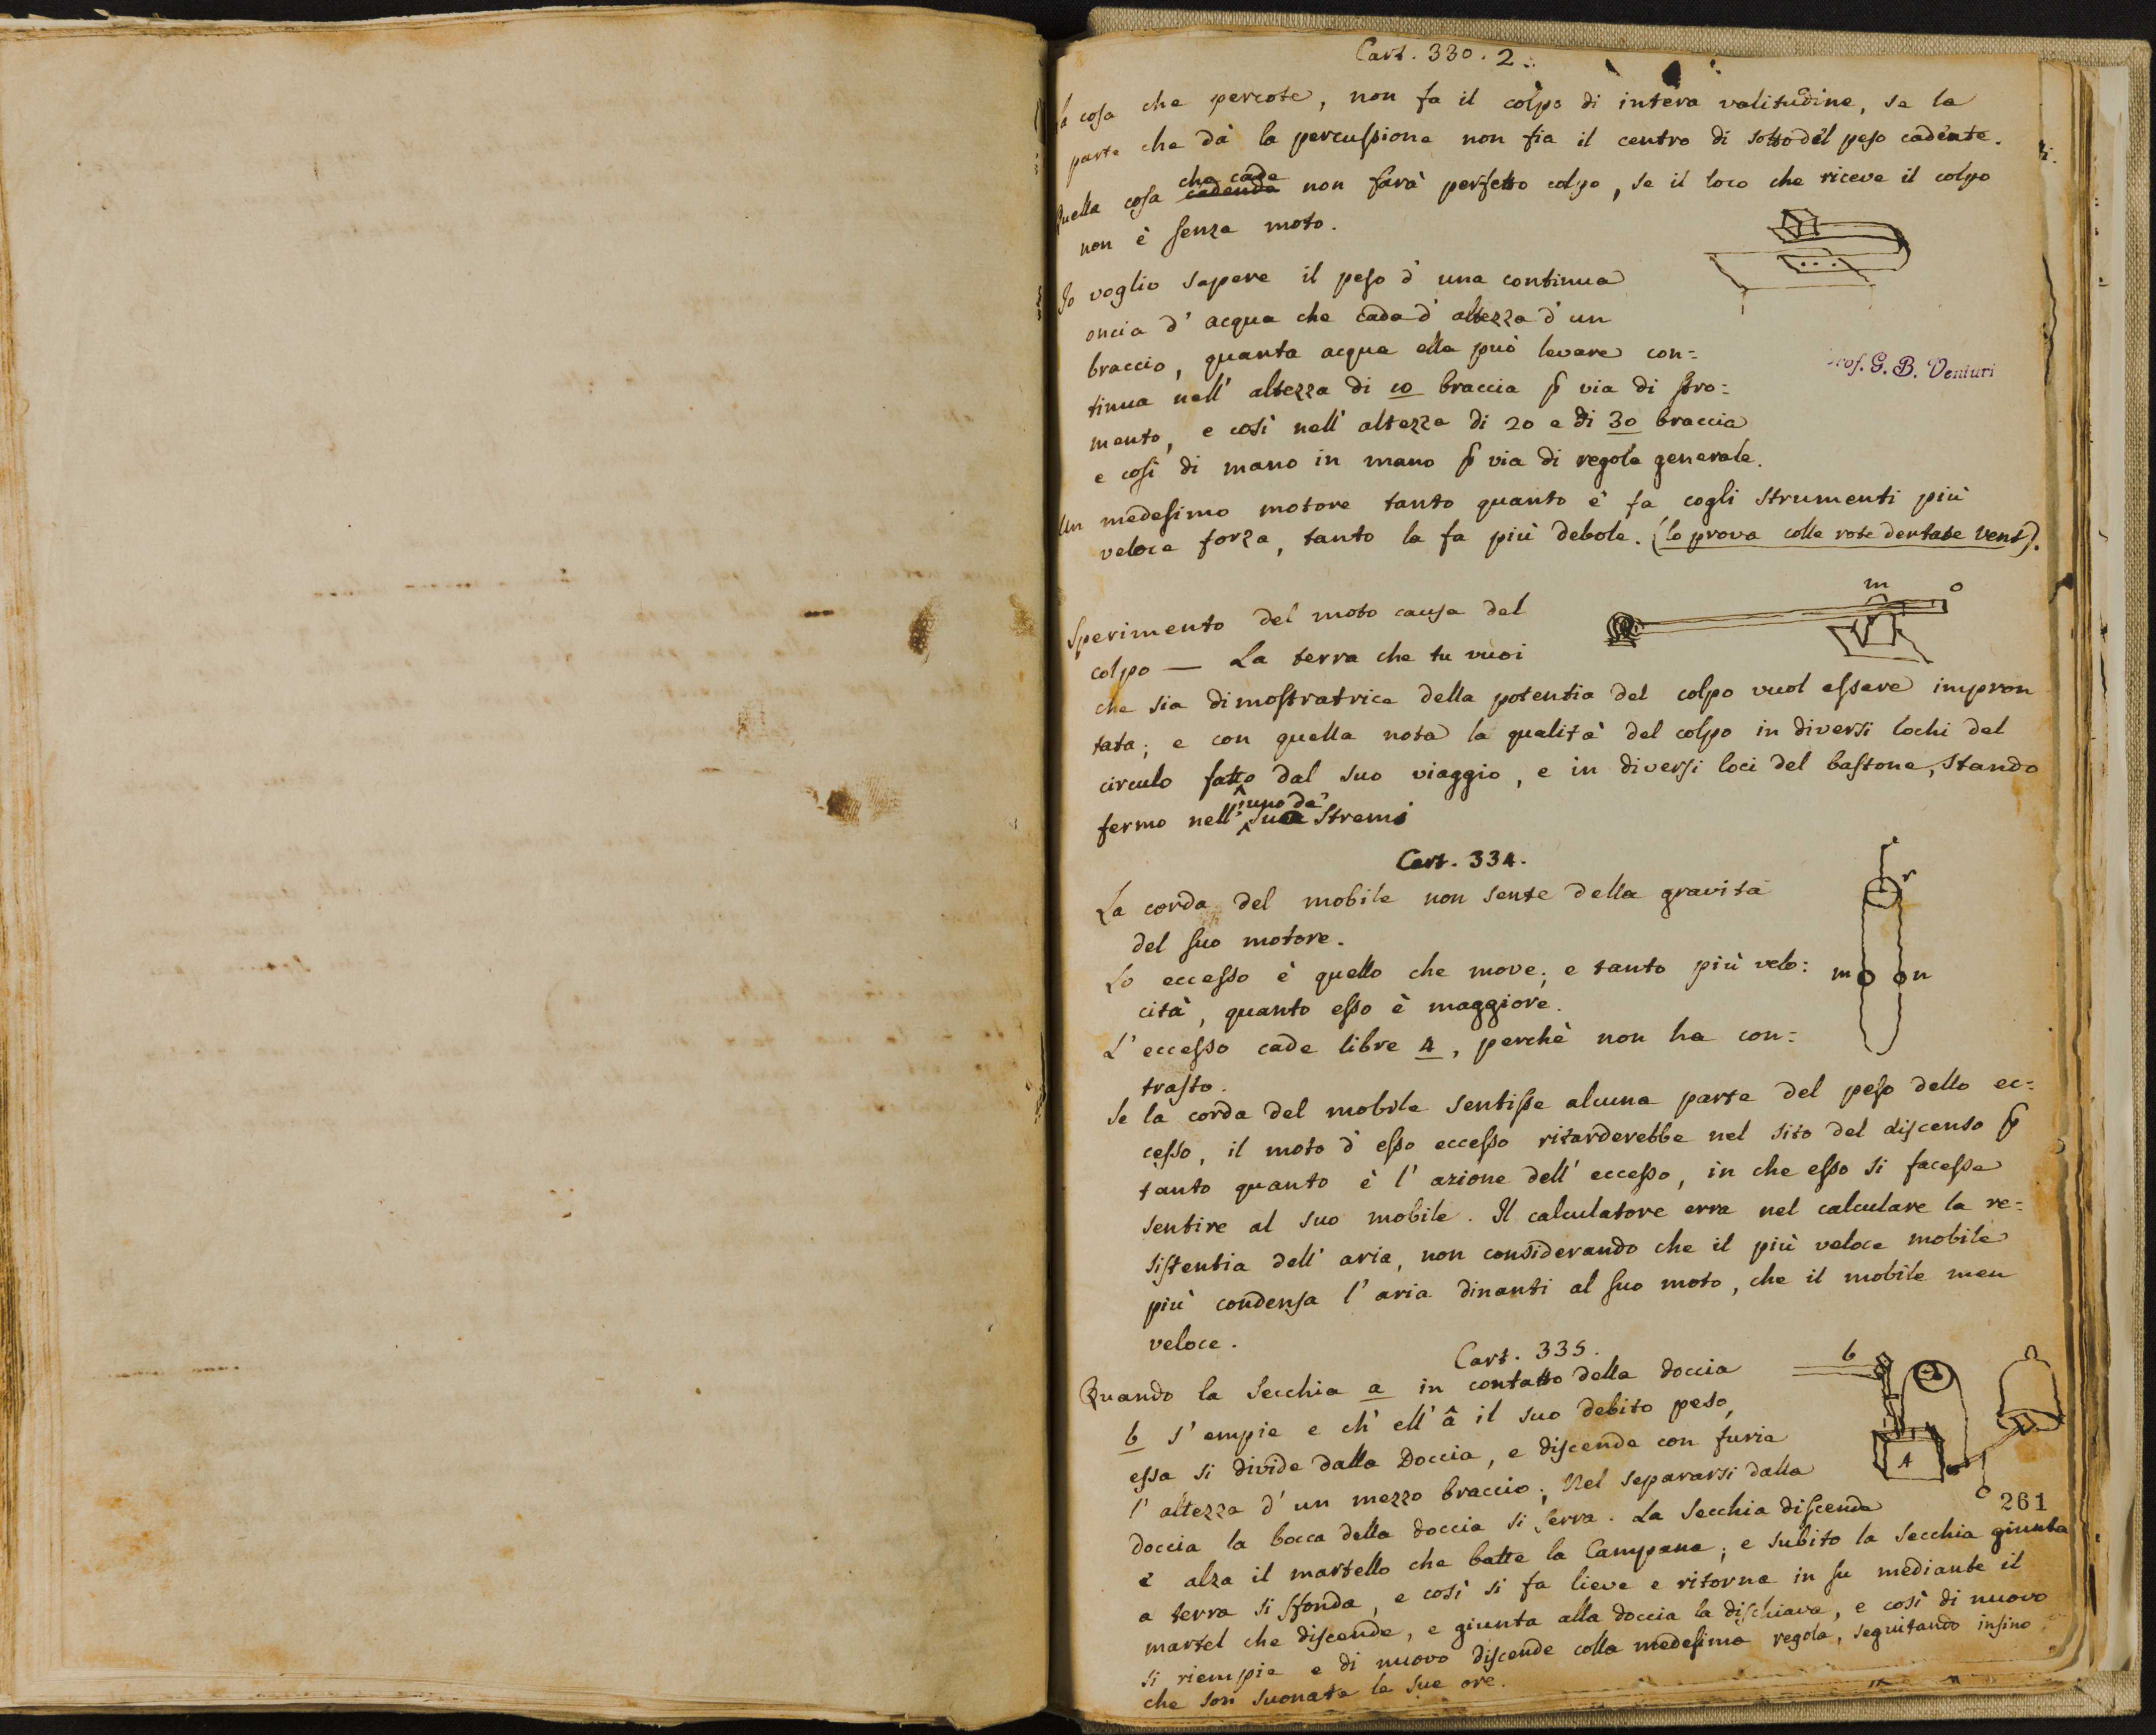 Cart. 330. 2.
la cosa che percote, non fa il colpo di intera valitudine, se la
parte che dà la percussione non fia il centro di sotto del peso cadente.
Quella cosa cadendo che cade non farà perfetto colpo, se il loco che riceve il colpo
non è senza moto.
Io voglio sapere il peso d' una continua
oncia d' acqua che cada d' altezza d' un
braccio, quanta acqua ella può levare con=
tinua nell' altezza di 10 braccia ꝑ via di stro=
mento, e così nell' altezza di 20 e di 30 braccia
e così di mano in mano ꝑ via di regola generale.
Prof. G. B. Venturi
Un medesimo motore tanto quanto e' fa cogli strumenti più
veloce forza, tanto la fa più debole. (lo prova colle rote dentate Vent).
m o
Sperimento del moto causa del
colpo — La terra che tu vuoi
che sia dimostratrice della potentia del colpo vuol essere impron
tata; e con quella nota la qualità del colpo in diversi lochi del
circulo fatto dal suo viaggio, e in diversi loci del bastone, stando
fermo nell' uno de' suoi stremi
Cart. 334.
r
La corda del mobile non sente della gravità
del suo motore.
Lo eccesso è quello che move; e tanto più velo=
m n
cità, quanto esso è maggiore.
L' eccesso cade libre 4, perchè non ha con=
trasto.
Se la corda del mobile sentisse alcuna parte del peso dello ec=
cesso, il moto d' esso eccesso ritarderebbe nel sito del discenso ꝑ
tanto quanto è l' azione dell' eccesso, in che esso si facesse
sentire al suo mobile. Il calculatore erra nel calculare la re=
sistentia dell' aria, non considerando che il più veloce mobile
più condensa l' aria dinanti al suo moto, che il mobile men
veloce.
Cart. 335.
b
Quando la secchia a in contatto della doccia
b s' empie e ch' ell' â il suo debito peso,
essa si divide dalla Doccia, e discende con furia
A
l' altezza d' un mezzo braccio; Nel separarsi dalla
c 261
doccia la bocca della doccia si serra. La secchia discende
e alza il martello che batte la Campana; e subito la secchia giunta
a terra si sfonda, e così si fa lieve e ritorna in su mediante il
martel che discende, e giunta alla doccia la dischiava, e così di nuovo
si riempie e di nuovo discende colla medesima regola, seguitando insino
che son suonate le sue ore.